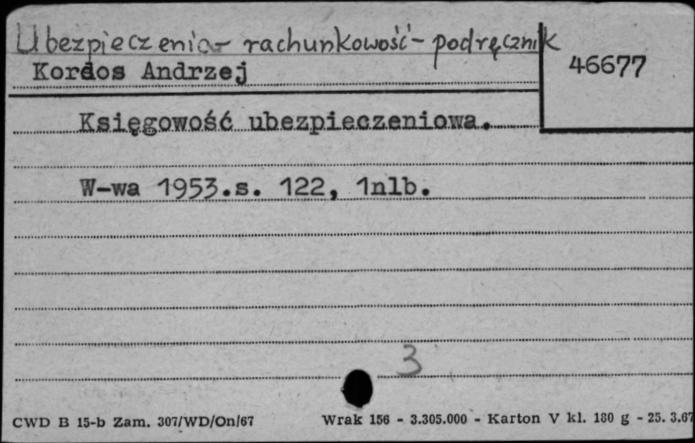 Ubezpieczenia - rachunkowość - podręcznik
Kordos Andrzej
46677
Księgowość ubezpieczeniowa.
W-wa 1953.s. 122, 1nlb.
3
CWD B 15-b Zam. 307/WD/On/67 Wrak 156 - 3.305.000 - Karton V kl. 180 g - 25. 3.67